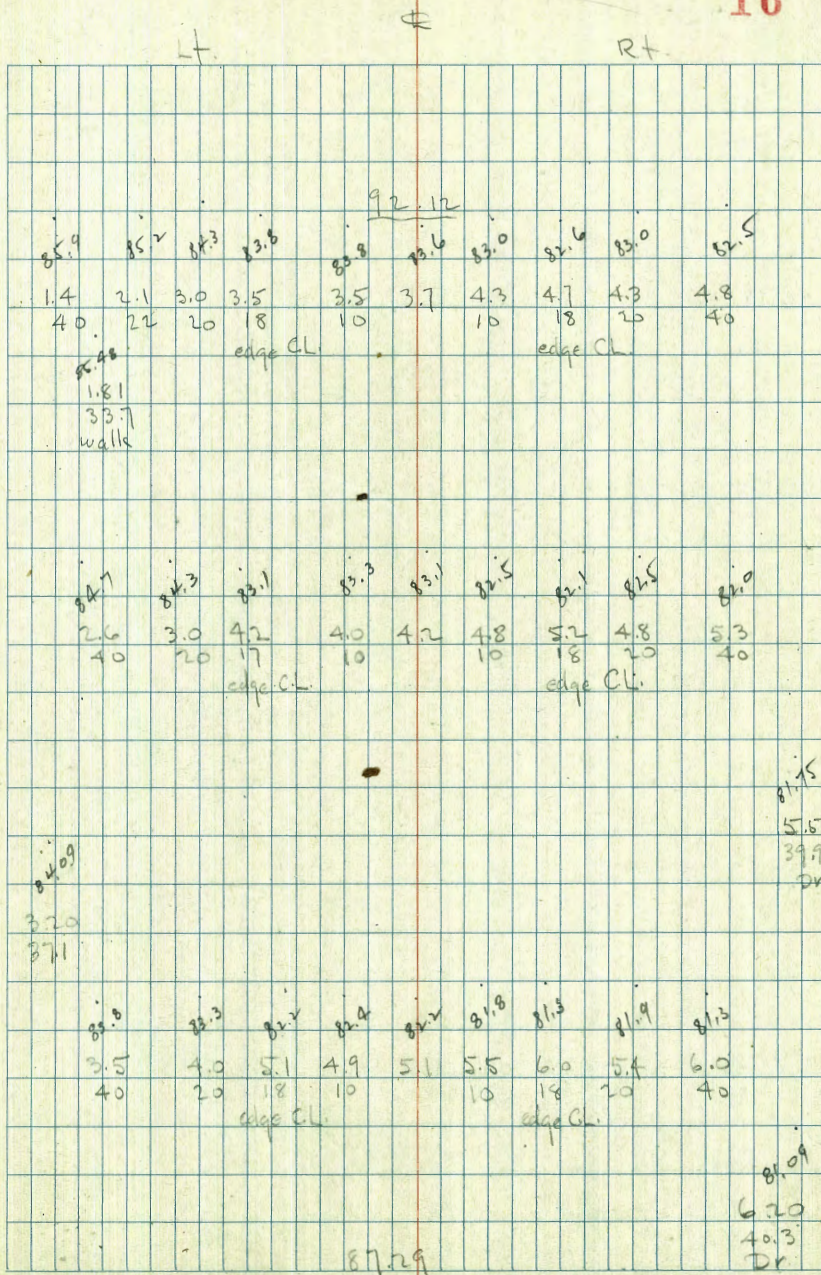 16
℄
Lt. Rt
92.12
85.9 85.2 84.3 83.8 83.8 83.6 83.0 82.6 83.0 82.5
1.4 2.1 3.0 3.5 3.5 3.7 4.3 4.7 4.3 4.8
40 22 20 18 10 10 18 20 40
edge CL. edge CL.
85.48
1.81
33.7
walk
84.7 84.3 83.1 83.3 83.1 82.5 82.1 82.5 82.0
2.6 3.0 4.2 4.0 4.2 4.8 5.2 4.8 5.3
40 20 17 10 10 18 20 40
edge CL. edge CL.
81.75
5.5
39.9
Dr
84.09
3.20
37.1
83.8 83.3 82.2 82.4 82.2 81.8 81.3 81.9 81.3
3.5 4.0 5.1 4.9 5.1 5.5 6.0 5.4 6.0
40 20 18 10 10 18 20 40
edge CL. edge CL.
81.09
6.20
40.3
Dr
87.29